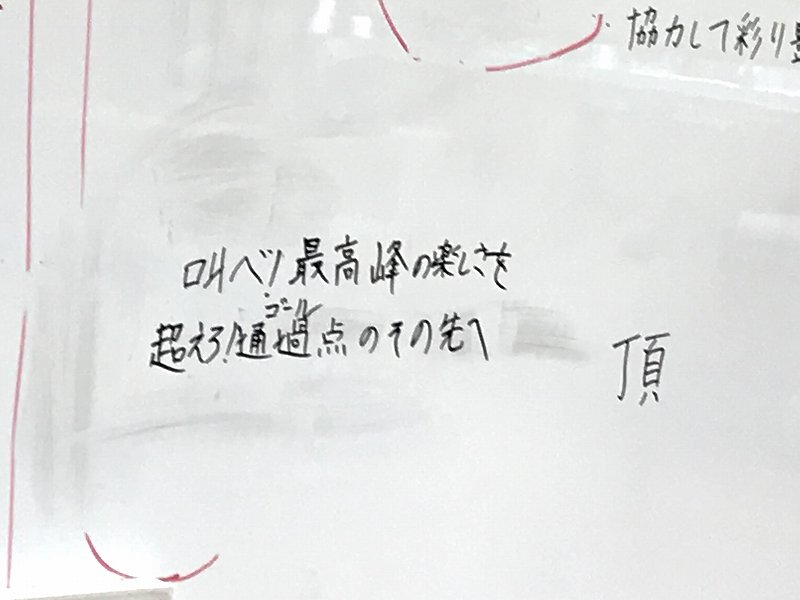 協力して彩り
叫べッ最高峰の楽しさを
ゴール
超えろ!通過点のその先へ
頂